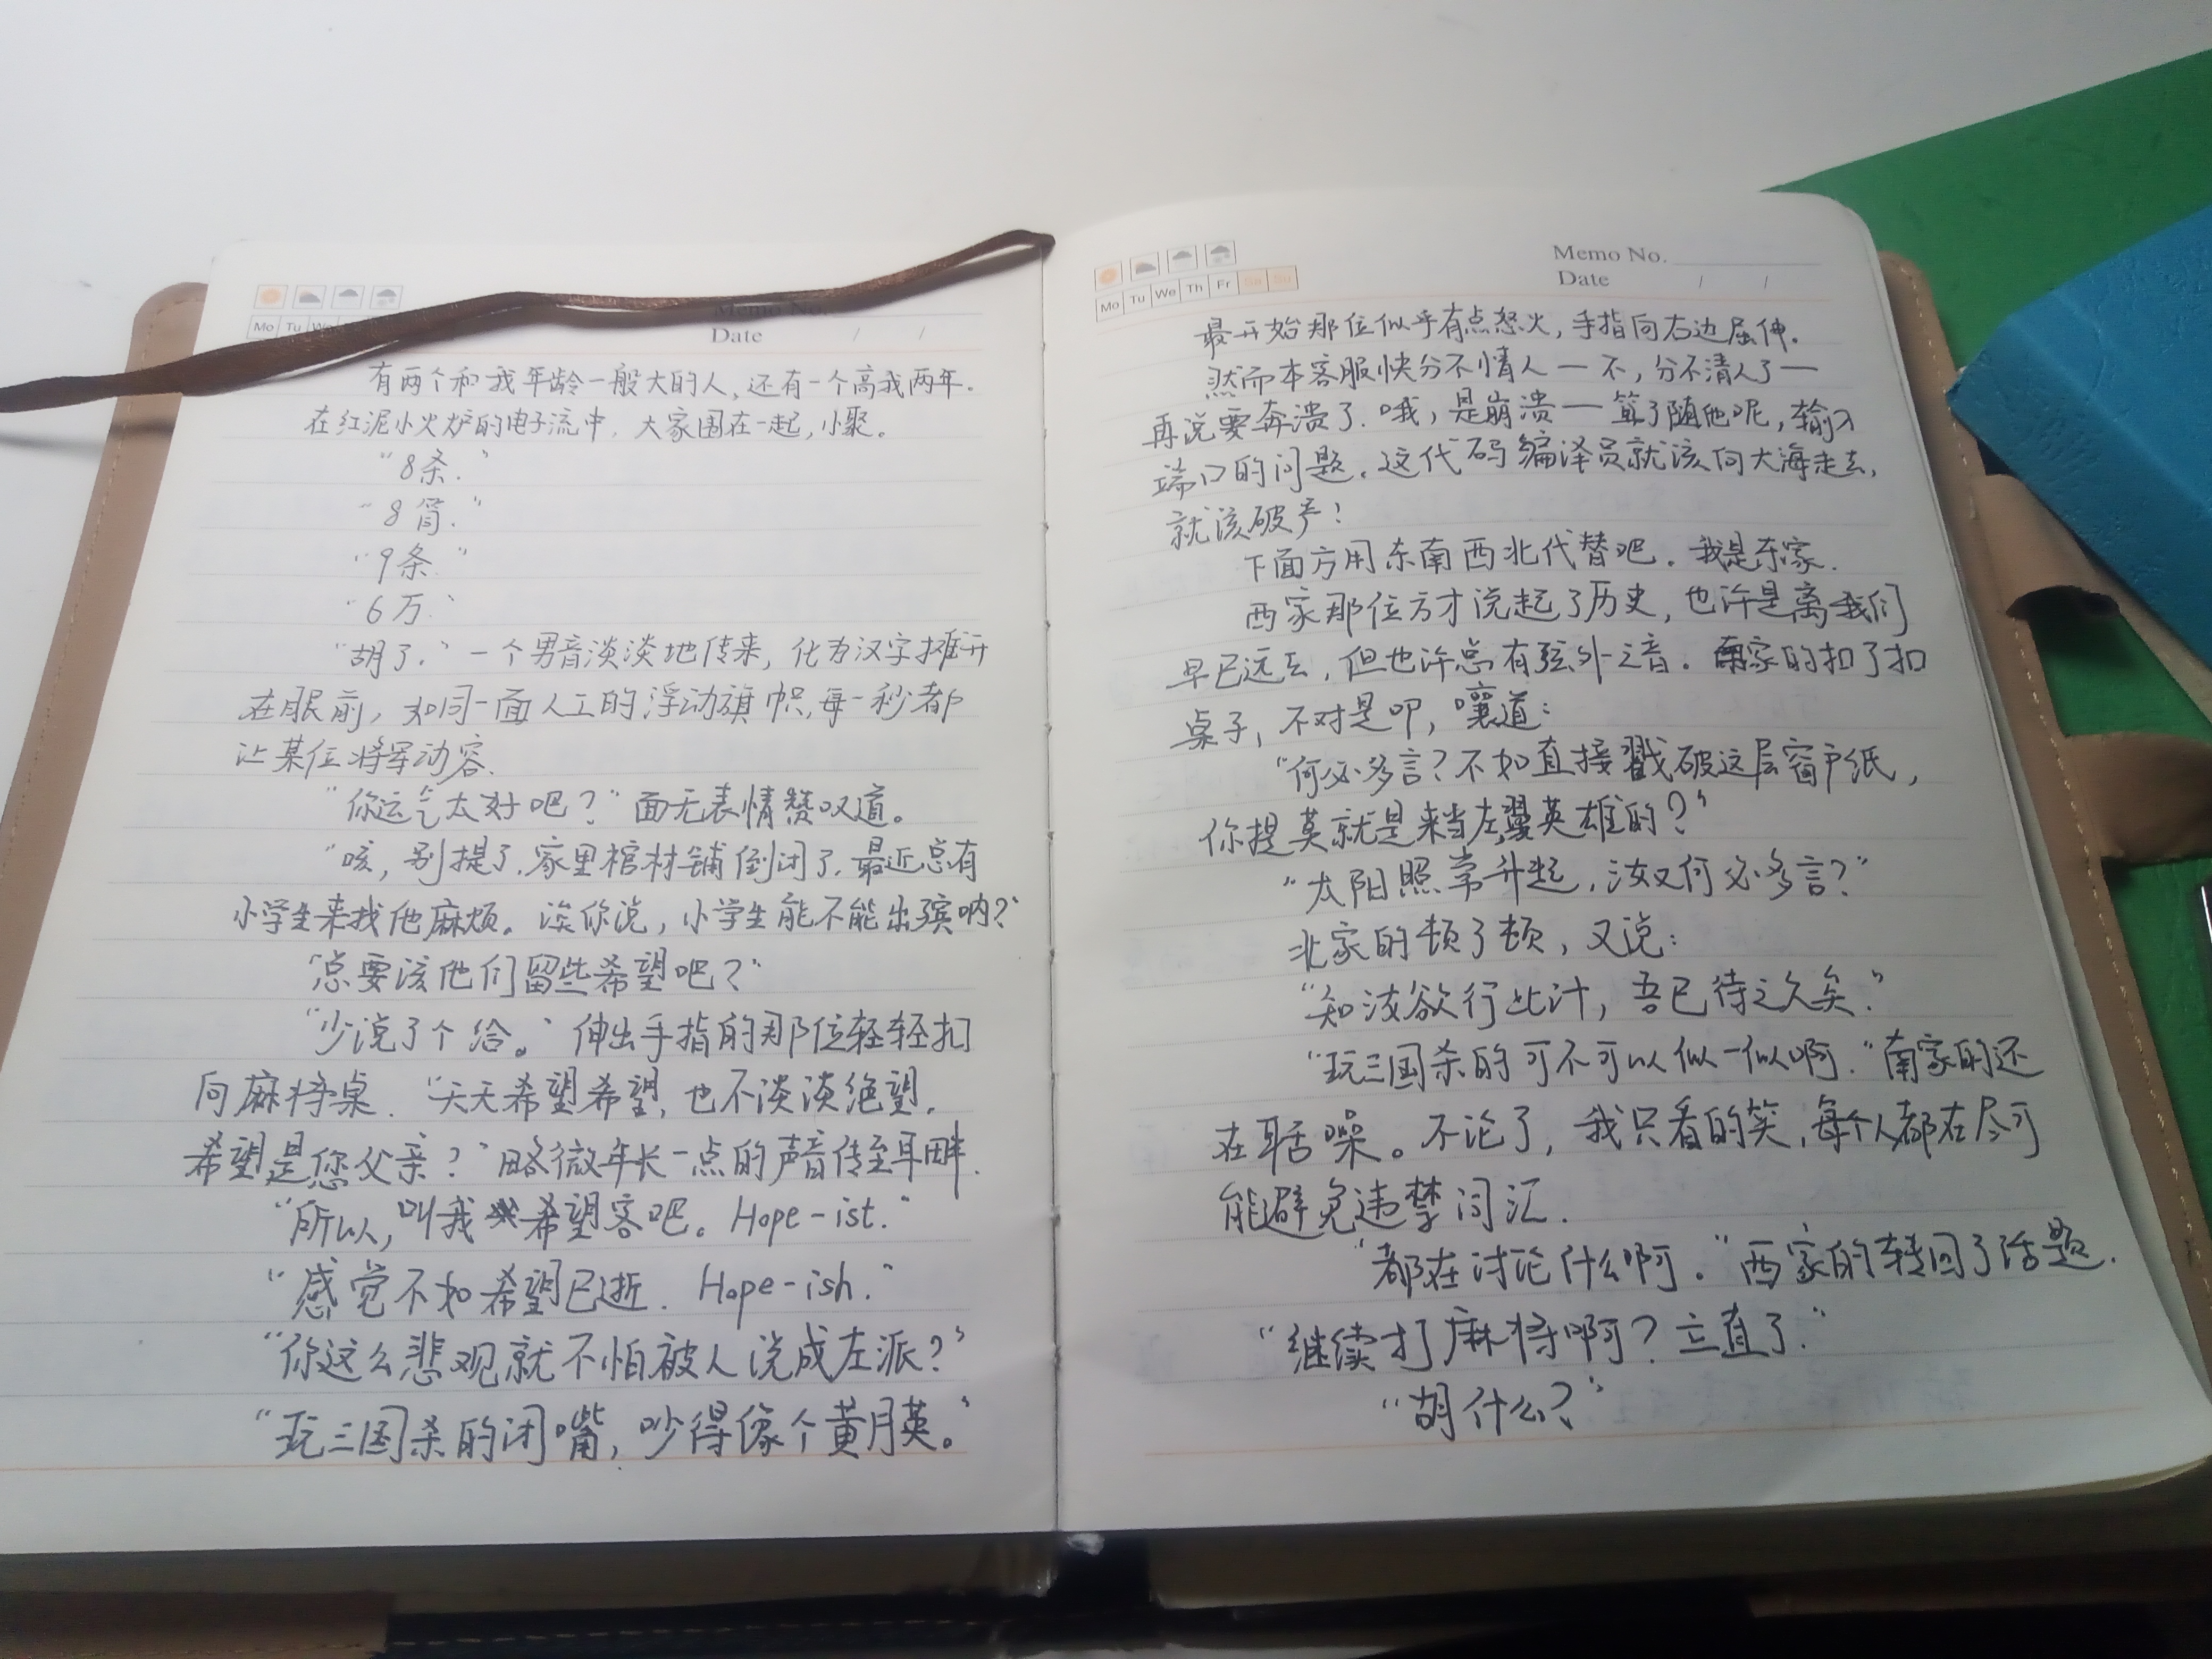 Mo Tu We
Memo No.
Date / /
有两个和我年龄一般大的人,还有一个高我两年.
在红泥小火炉的电子流中,大家围在一起,小聚。
“8条.”
“8筒.”
“9条.”
“6万.”
“胡了.”一个男音淡淡地传来,化为汉字摊开
在眼前,如同一面人工的浮动旗帜,每一秒都
让某位将军动容.
“你运气太好吧?”面无表情赞叹道。
“咳,别提了.家里棺材铺倒闭了.最近总有
小学生来找他麻烦。谈你说,小学生能不能出殡呐?”
“总要该他们留些希望吧?”
“少说了个给。”伸出手指的那位轻轻扣
向麻将桌.“天天希望希望,也不淡淡绝望.
希望是您父亲?”略微年长一点的声音传至耳畔.
“所以,叫我希望客吧。Hope-ist.”
“感觉不如希望已逝. Hope-ish.”
“你这么悲观就不怕被人说成左派?”
“玩三国杀的闭嘴,吵得像个黄月英。”
Mo Tu We Th Fr Sa Su
Memo No.
Date / /
最开始那位似乎有点怒火,手指向右边屈伸.
然而本客服快分不情人—不,分不清人了—
再说要奔溃了.哦,是崩溃—算了随他呢,输入
端口的问题.这代码编泽员就该向大海走去,
就该破产!
下面方用东南西北代替吧.我是东家.
西家那位方才说起了历史,也许是离我们
早已远去,但也许总有弦外之音.南家的扣了扣
桌子,不对是叩,嚷道:
“何必多言?不如直接戳破这层窗户纸,
你提莫就是来当左翼英雄的?”
“太阳照常升起,汝又何必多言?”
北家的顿了顿,又说:
“知汝欲行此计,吾已待之久矣.”
“玩三国杀的可不可以似一似啊.”南家的还
在聒噪。不论了,我只看的笑,每个人都在尽可
能避免违禁词汇.
“都在讨论什么啊.”西家的转回了话题.
“继续打麻将啊?立直了.”
“胡什么?”